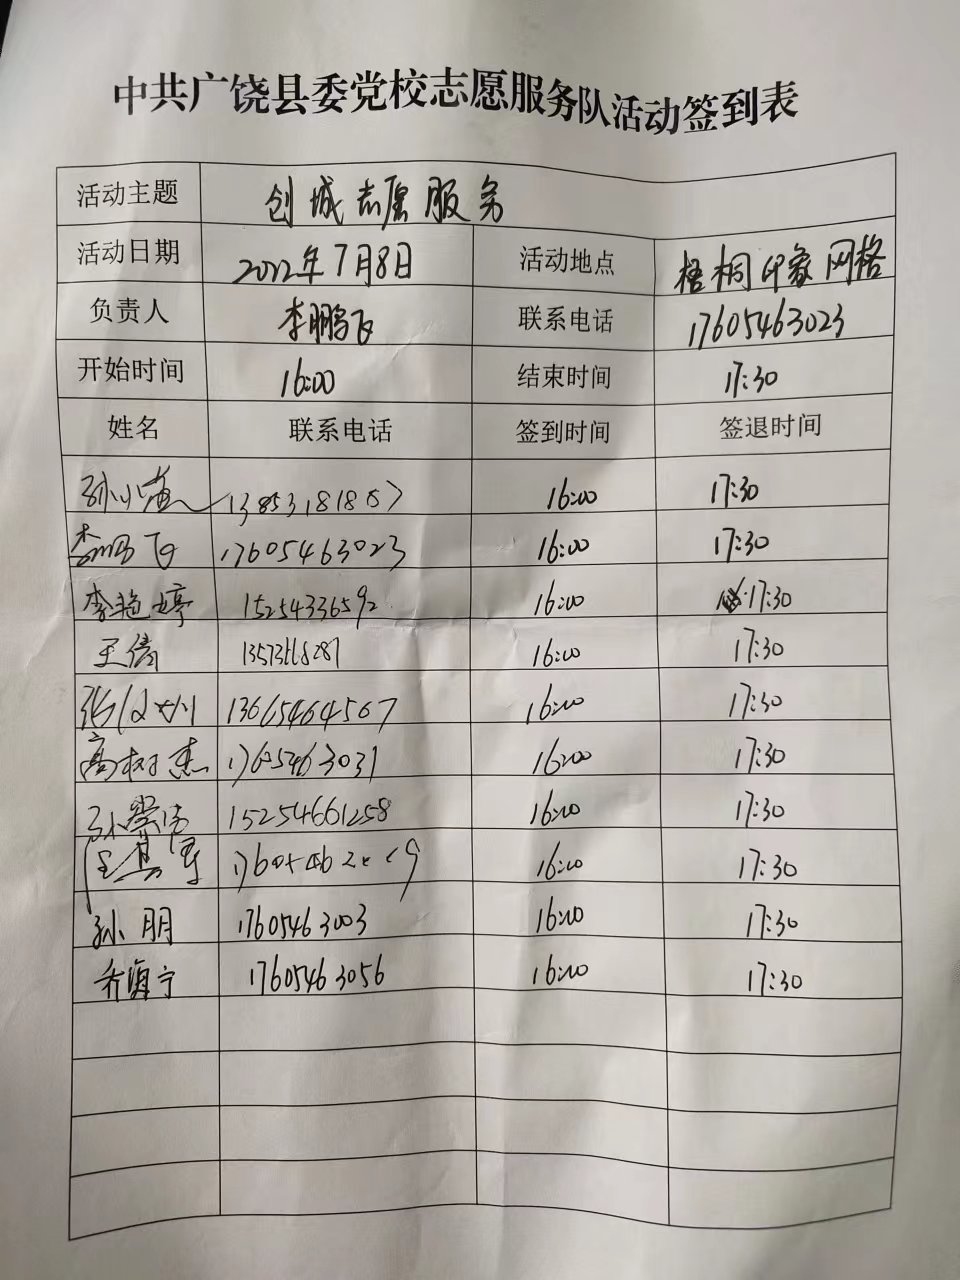 中共广饶县委党校志愿服务队活动签到表
活动主题 创城志愿服务
活动日期 2022年7月8日 活动地点 梧桐印象网格
负责人 李鹏飞 联系电话 17605463023
开始时间 16:00 结束时间 17:30
姓名 联系电话 签到时间 签退时间
孙小 16:00 17:30
李鹏飞 17605463023 16:00 17:30
李艳婷 15254336592 16:00 17:30
王倩 16:00 17:30
13665464567 16:00 17:30
高树杰 17605463031 16:00 17:30
孙 15254661258 16:00 17:30
16:00 17:30
孙朋 17605463003 16:00 17:30
乔海宁 17605463056 16:00 17:30